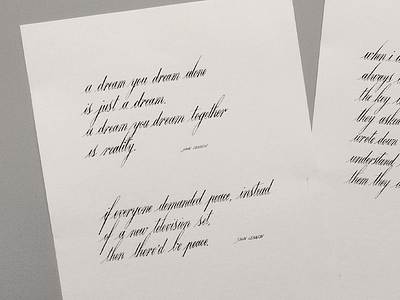 a dream you dream alone
is just a dream.
a dream you dream together
is reality.
JOHN LENNON
if everyone demanded peace, instead
of a new television set,
then there'd be peace.
JOHN LENNON
when i
always
the key
they asked
wrote down
understand
them they